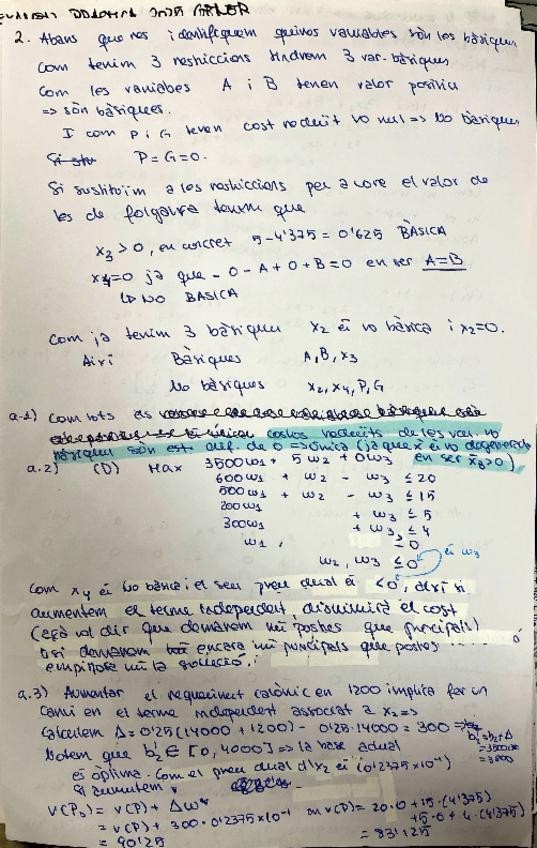 EXAMEN DIDACTICA 2025 GENER
2. Abans que res identifiquem quines variables són les bàsiques
Com tenim 3 restriccions tindrem 3 var. bàsiques
Com les variables A i B tenen valor positiu
=> són bàsiques.
I com P i G tenen cost reduït no nul => No bàsiques
P=G=0.
Si substituim a les restriccions per a vore el valor de
les de folgança tenim que
x3 > 0, en concret 5-4'375 = 0'625 BÀSICA
x4=0 ja que - 0 - A + 0 + B = 0 en ser A=B
↳ NO BASICA
Com ja tenim 3 bàsiques x2 és no bàsica i x2=0.
Així Bàsiques A, B, x3
No bàsiques x2, x4, P, G
a.1) Com tots els
costos reduïts de les var. no
bàsiques són est. dif. de 0 => única (ja que x és no degenerada
en ser x3>0)
a.2) (D) Max 3500w1 + 5w2 + 0w3
600w1 + w2 - w3 ≤ 20
500w1 + w2 - w3 ≤ 15
200w1 + w3 ≤ 5
300w1 + w3 ≤ 4
w1, ≥0
w2, w3 ≤0 és w3
Com x4 és no bàsica i el seu preu dual és <0, així si
aumentem el terme independent, disminuirà el cost
(açò vol dir que demanem més postres que principals)
o si demanem encara més principals que postres
empitjora més la solució.
a.3) Aumentar el requeriment calòric en 1200 implica fer un
canvi en el terme independent associat a x2 =>
Calculem Δ = 0'25(14000 + 1200) - 0'25·14000 = 300 =>
b'2=b2+Δ
=3500+300
=3800
Notem que b'2 ∈ [0, 4000] => la base actual
és òptima. Com el preu dual d'x2 és (0'2375×10⁻¹)
si aumentem
v(P2) = v(P) + Δw* on v(P) = 20·0 + 15·(4'375)
= v(P) + 300·0'2375×10⁻¹ +5·0 + 4·(4'375)
= 90'25 = 83'125